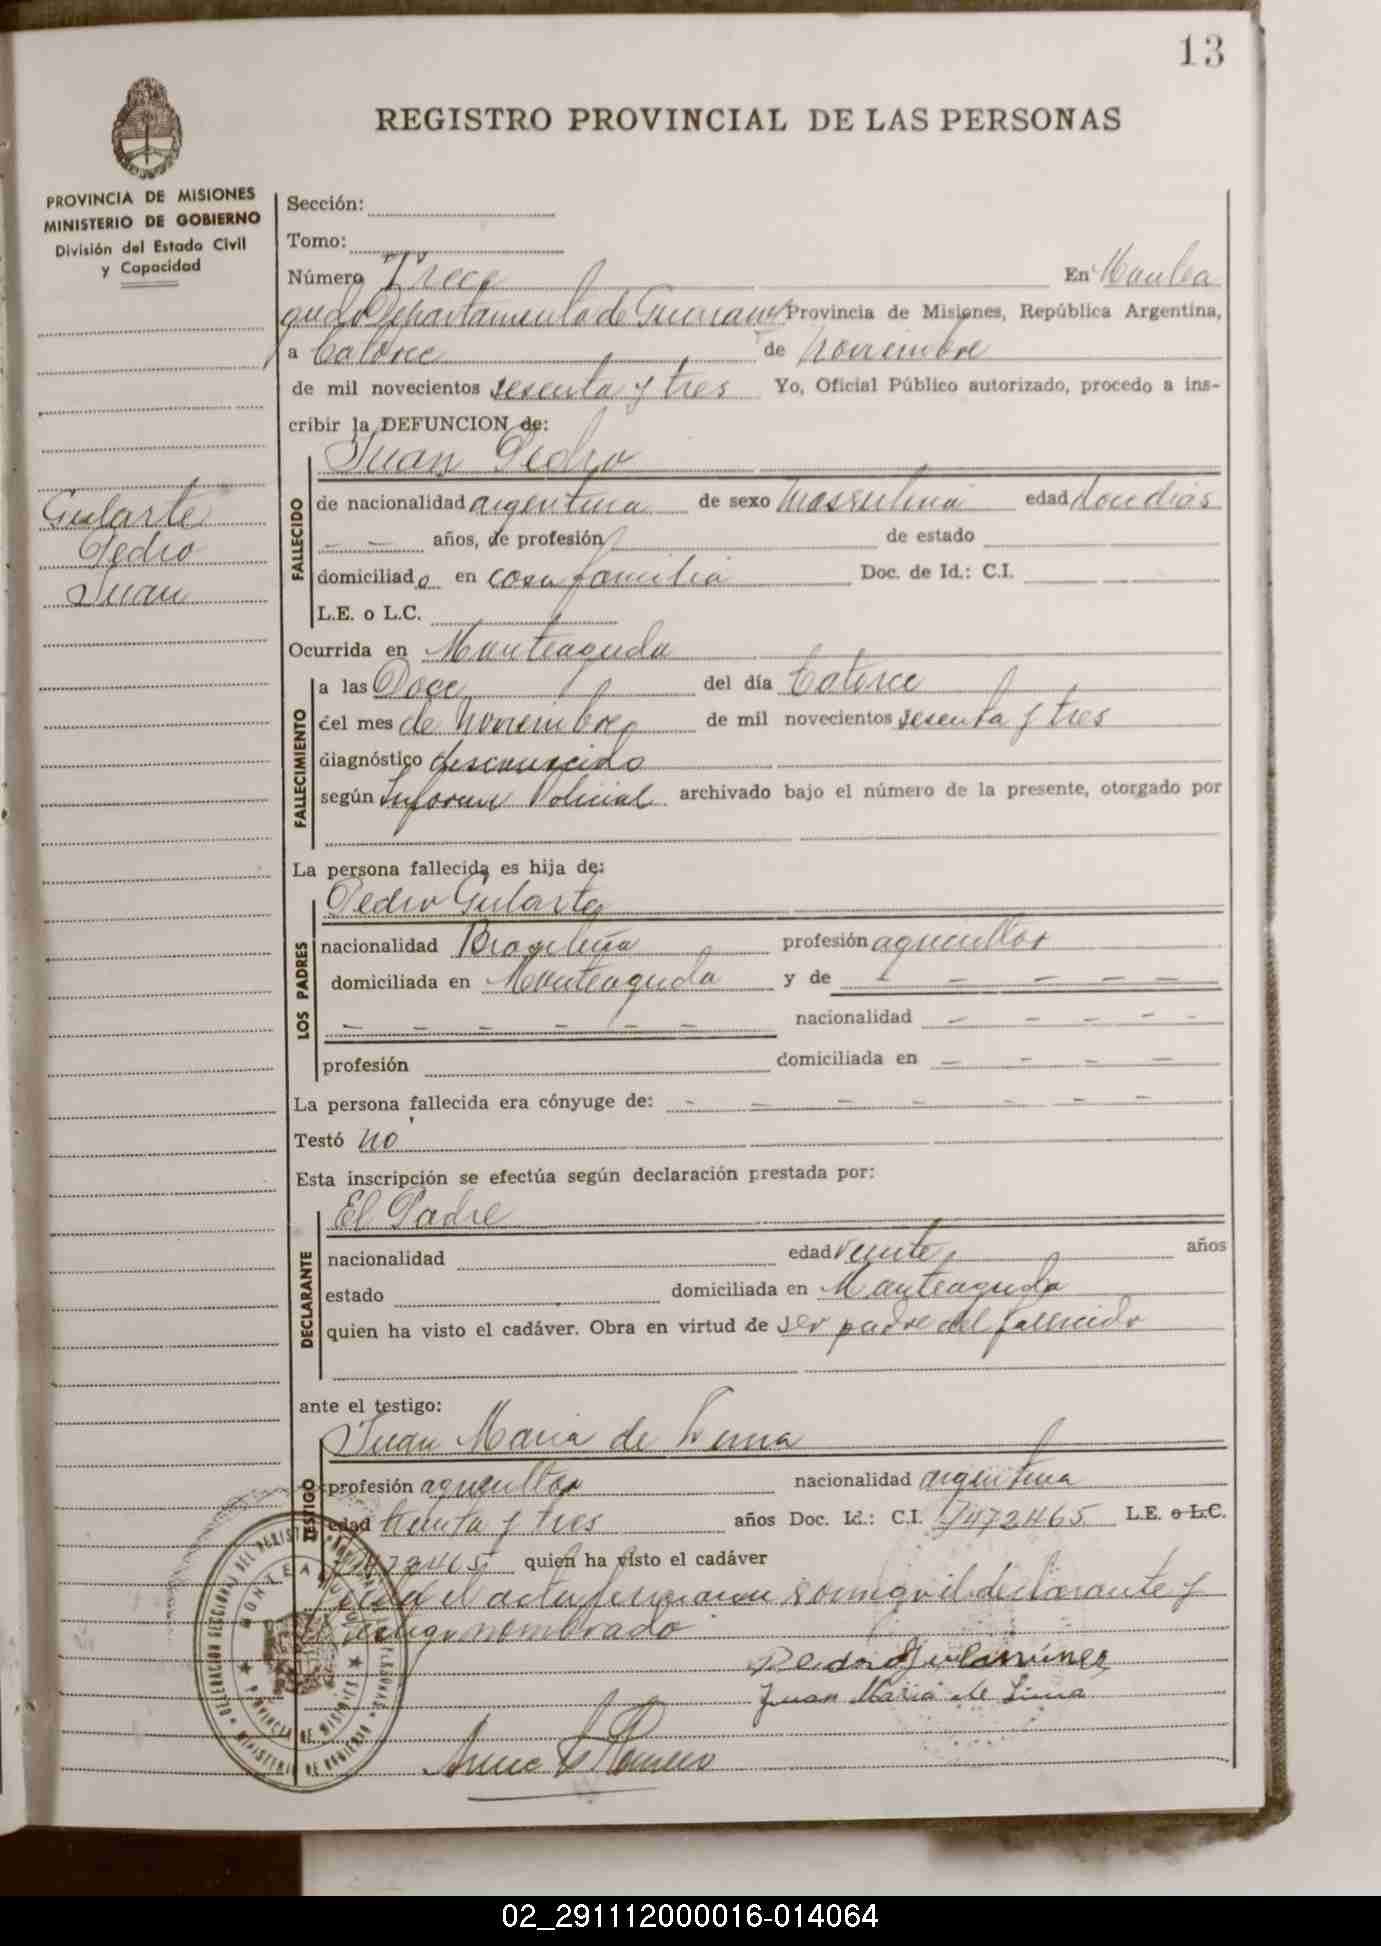 13
REGISTRO PROVINCIAL DE LAS PERSONAS
PROVINCIA DE MISIONES
MINISTERIO DE GOBIERNO
División del Estado Civil
y Capacidad
Gularte
Pedro
Juan
Sección:
Tomo:
Número Trece En Montea
gudo Departamento de Guaraní Provincia de Misiones, República Argentina,
a Catorce de noviembre
de mil novecientos sesenta y tres Yo, Oficial Público autorizado, procedo a ins-
cribir la DEFUNCION de:
Juan Pedro
FALLECIDO
de nacionalidad argentina de sexo masculino edad dos dias
— — años, de profesión de estado
domiciliado en casa familia Doc. de Id.: C.I.
L.E. o L.C.
Ocurrida en Monteagudo
FALLECIMIENTO
a las Doce del día Catorce
del mes de noviembre de mil novecientos sesenta y tres
diagnóstico desconocido
según Informe Policial archivado bajo el número de la presente, otorgado por
La persona fallecida es hija de:
Pedro Gularte
LOS PADRES
nacionalidad Brasileña profesión agricultor
domiciliada en Monteagudo y de — — — — —
— — — — — — nacionalidad — — — — -
profesión domiciliada en — - — —
La persona fallecida era cónyuge de: - — — — — —
Testó no
Esta inscripción se efectúa según declaración prestada por:
El Padre
DECLARANTE
nacionalidad edad veinte años
estado domiciliada en Monteagudo
quien ha visto el cadáver. Obra en virtud de ser padre del fallecido
ante el testigo:
Juan Maria de Lima
TESTIGO
profesión agricultor nacionalidad argentina
edad treinta y tres años Doc. Id.: C.I. 7472465 L.E. o L.C.
7472465 quien ha visto el cadáver
el acta firmaron conmigo el declarante y
testigo nombrado
Juan Maria de Lima
02_291112000016-014064